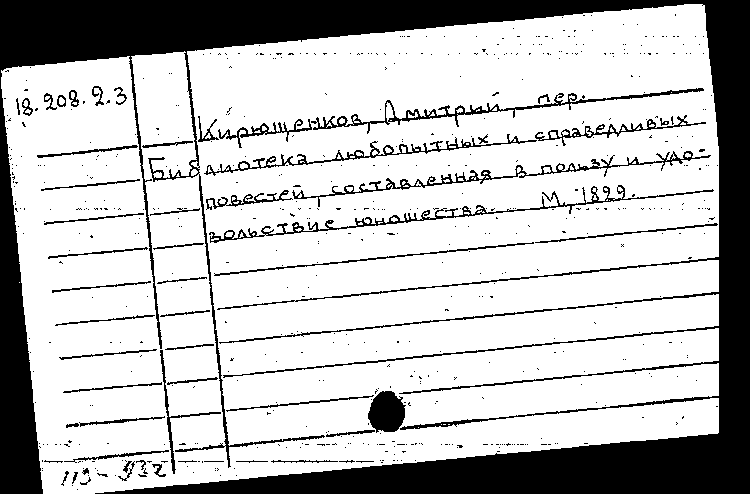 18.208.2.3
Кирющенков, Дмитрий, пер.
Библиотека любопытных и справедливых
повестей, составленная в пользу и удо-
вольствие юношества. М., 1829.
113-932